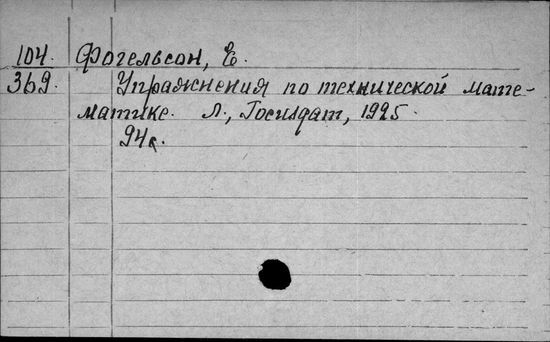 104. Фогельсон, Е.
369. Упражнения по технической мате-
матике. Л., Госиздат, 1925.
94с.